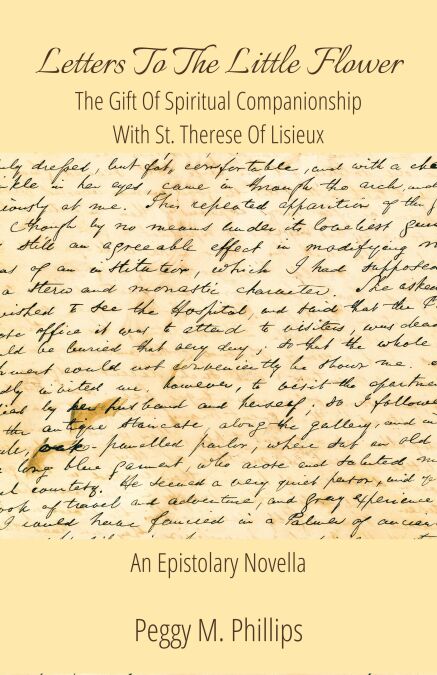 Letters To The Little Flower
The Gift Of Spiritual Companionship
With St. Therese Of Lisieux
dressed, but fat, comfortable, and with a
in her eyes, came in through the arch, and
at me. This repeated apparition of the
though by no means under its loveliest
still an agreeable effect in modifying
of an institution, which I had supposed
a stern and monastic character. She asked
wished to see the Hospital, and said that the
office it was to attend to visitors, was dead
be buried that very day, so that the whole
could not conveniently be shown me.
invited me, however, to visit the apartment
by her husband and herself, so I followed
the antique staircase, along the gallery, and in
oak-panelled parlor, where sat an old
long blue garment, who arose and saluted me
courtesy. He seemed a very quiet person, and
of travel and adventure, and gray experience
I could have fancied in a Palmer of ancient
An Epistolary Novella
Peggy M. Phillips